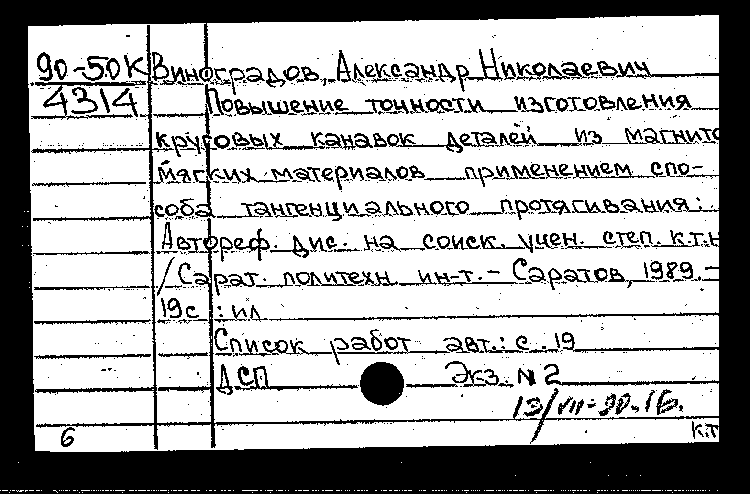 90-50К Виноградов, Александр Николаевич
4314 Повышение точности изготовления
круговых канавок деталей из магнито
мягких материалов применением спо-
соба тангенциального протягивания:
Автореф. дис. на соиск. учен. степ. к.т.н
/Сарат. политехн. ин-т. - Саратов, 1989. -
19с : ил
Список работ авт.: с. 19
ДСП Экз. N 2
13/VII-90.
6 К.Т